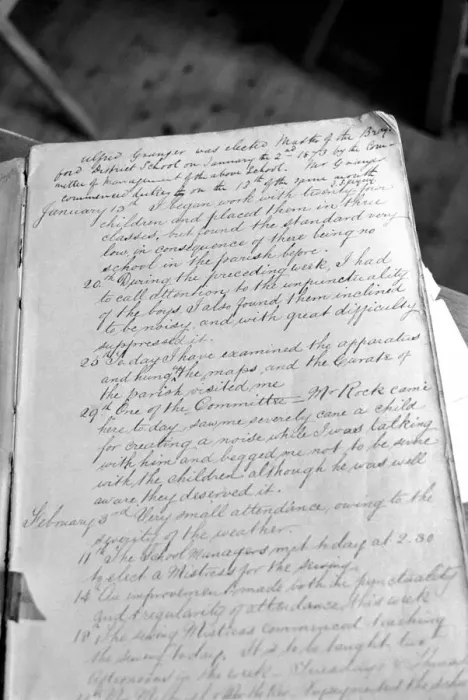 Alfred Granger was elected Master of the
ford District School on January the 2nd 1873 by the Com-
mittee of Management of the above School. Mr Granger
commenced duties on the 13th of the same month
January 13th I began work with twenty four
children and placed them in three
classes, but found the standard very
low in consequence of there being no
school in the parish before.
20th During the preceding week, I had
to call attention to the unpunctuality
of the boys. I also found them inclined
to be noisy, and with great difficulty
suppressed it.
25th To day I have examined the apparatus
and hung up the maps, and the Curate of
the parish visited me
29th One of the Committee = Mr Rock came
here to day saw me severely cane a child
for creating a noise while I was talking
with him and begged me not to be severe
with the children although he was well
aware they deserved it.
February 3rd Very small attendance, owing to the
severity of the weather.
11th The School Managers met to day at 2.30
to elect a Mistress for the sewing
14th An improvement made both in punctuality
and regularity of attendance this week
18th The sewing Mistress commenced teaching
the sewing to day. It is to be taught two
afternoons in the week